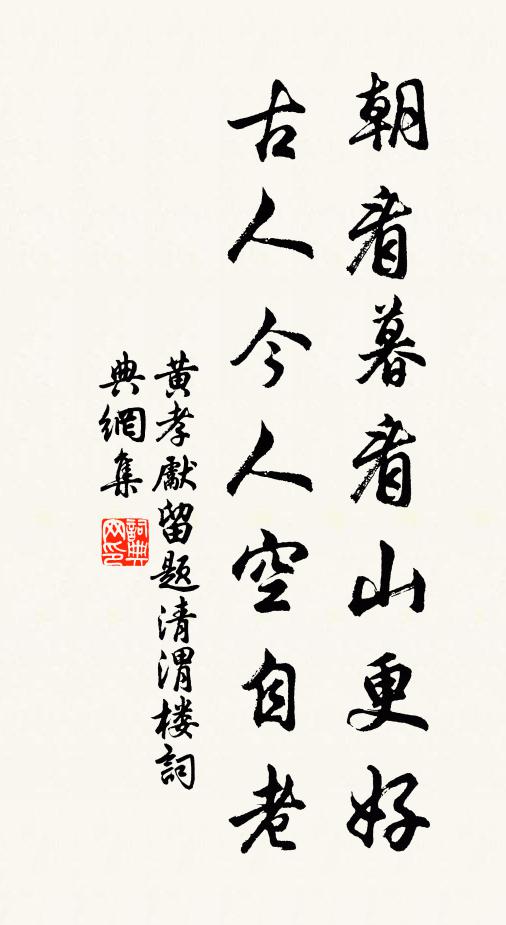 朝看暮看山更好
古人今人空自老
黄孝献留题清渭楼词
典網集
詞典網印